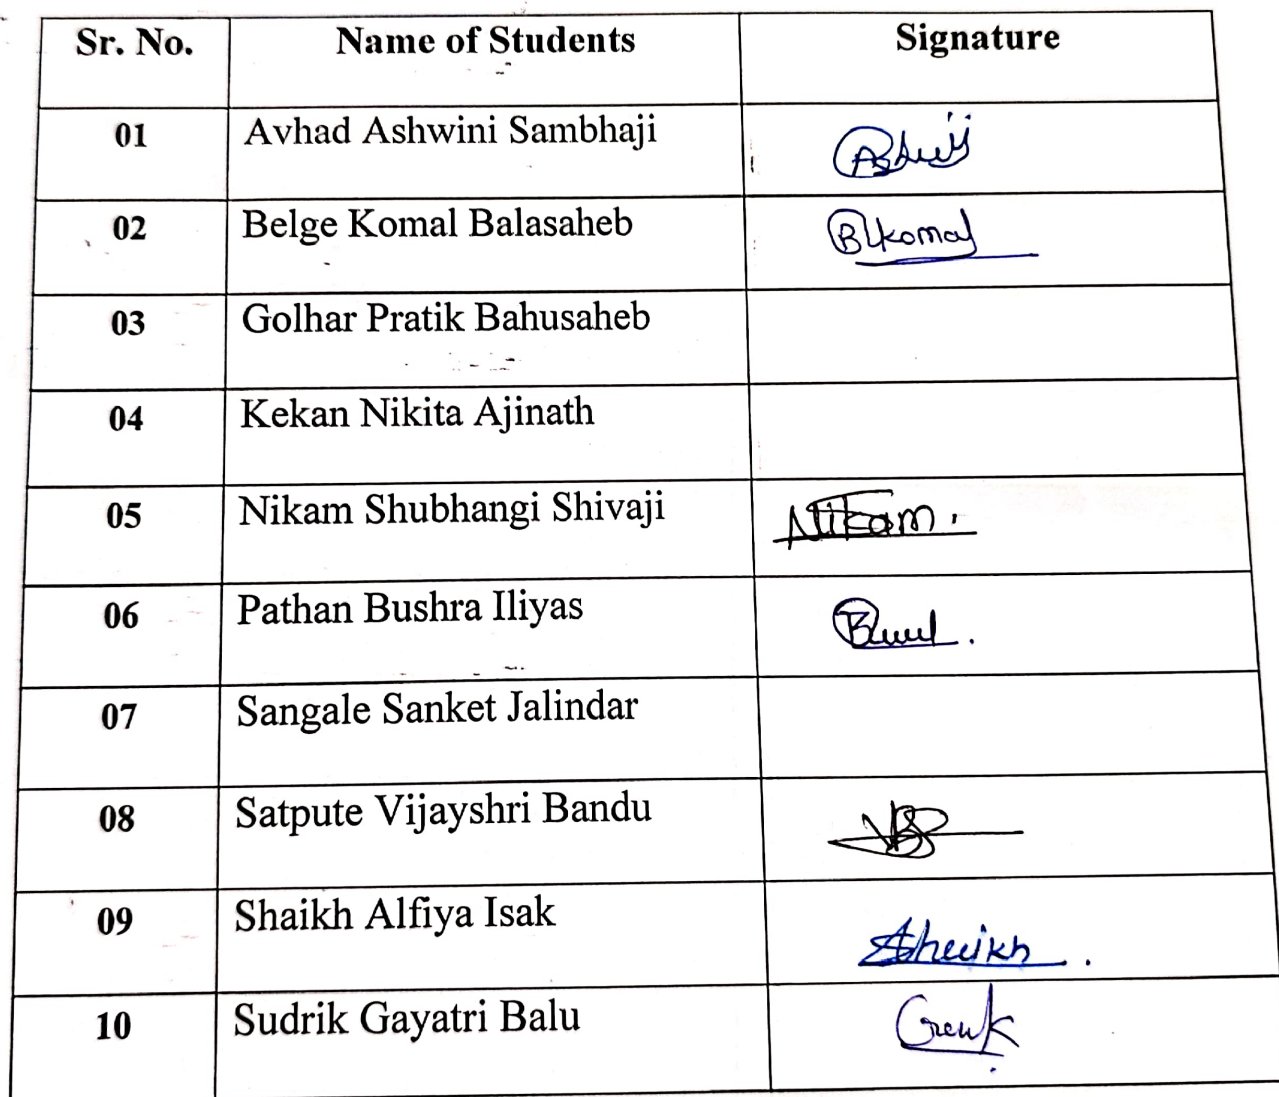 Sr. No. Name of Students Signature
01 Avhad Ashwini Sambhaji
02 Belge Komal Balasaheb Bkomal
03 Golhar Pratik Bahusaheb
04 Kekan Nikita Ajinath
05 Nikam Shubhangi Shivaji Nikam.
06 Pathan Bushra Iliyas
07 Sangale Sanket Jalindar
08 Satpute Vijayshri Bandu
09 Shaikh Alfiya Isak
10 Sudrik Gayatri Balu